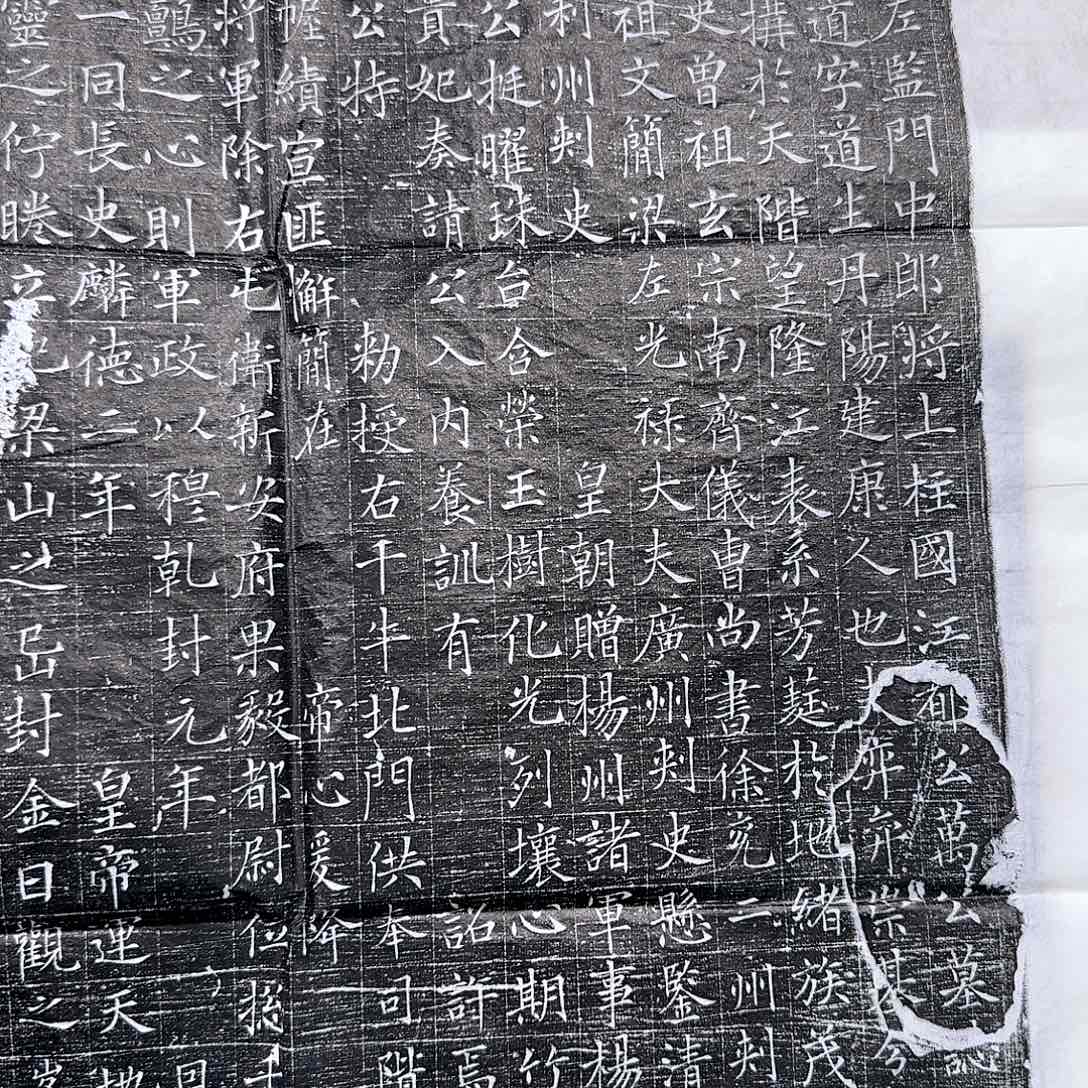 左監門中郎將上柱國江都公萬公墓誌
道字道生丹陽建康人也大弈弈崇基兮
構於天階望隆江表系芳莚於地緒族茂
史曾祖玄宗南齊儀曹尚書徐兖二州刾
祖文簡梁左光祿大夫廣州刾史懸鑒清
利州刾史皇朝贈楊州諸軍事楊
公挺曜珠台含榮玉樹化光列壤心期竹
貴妃奏請公入內養訓有詔許焉
公特勑授右千牛北門供奉司階
幄績宣匪懈簡在帝心爰降
將軍除右屯衛新安府果毅都尉位
鸇之心則軍政以穆乾封元年
一同長史麟德二年皇帝運天
靈之佇睠立祀梁山之岊封金日觀之